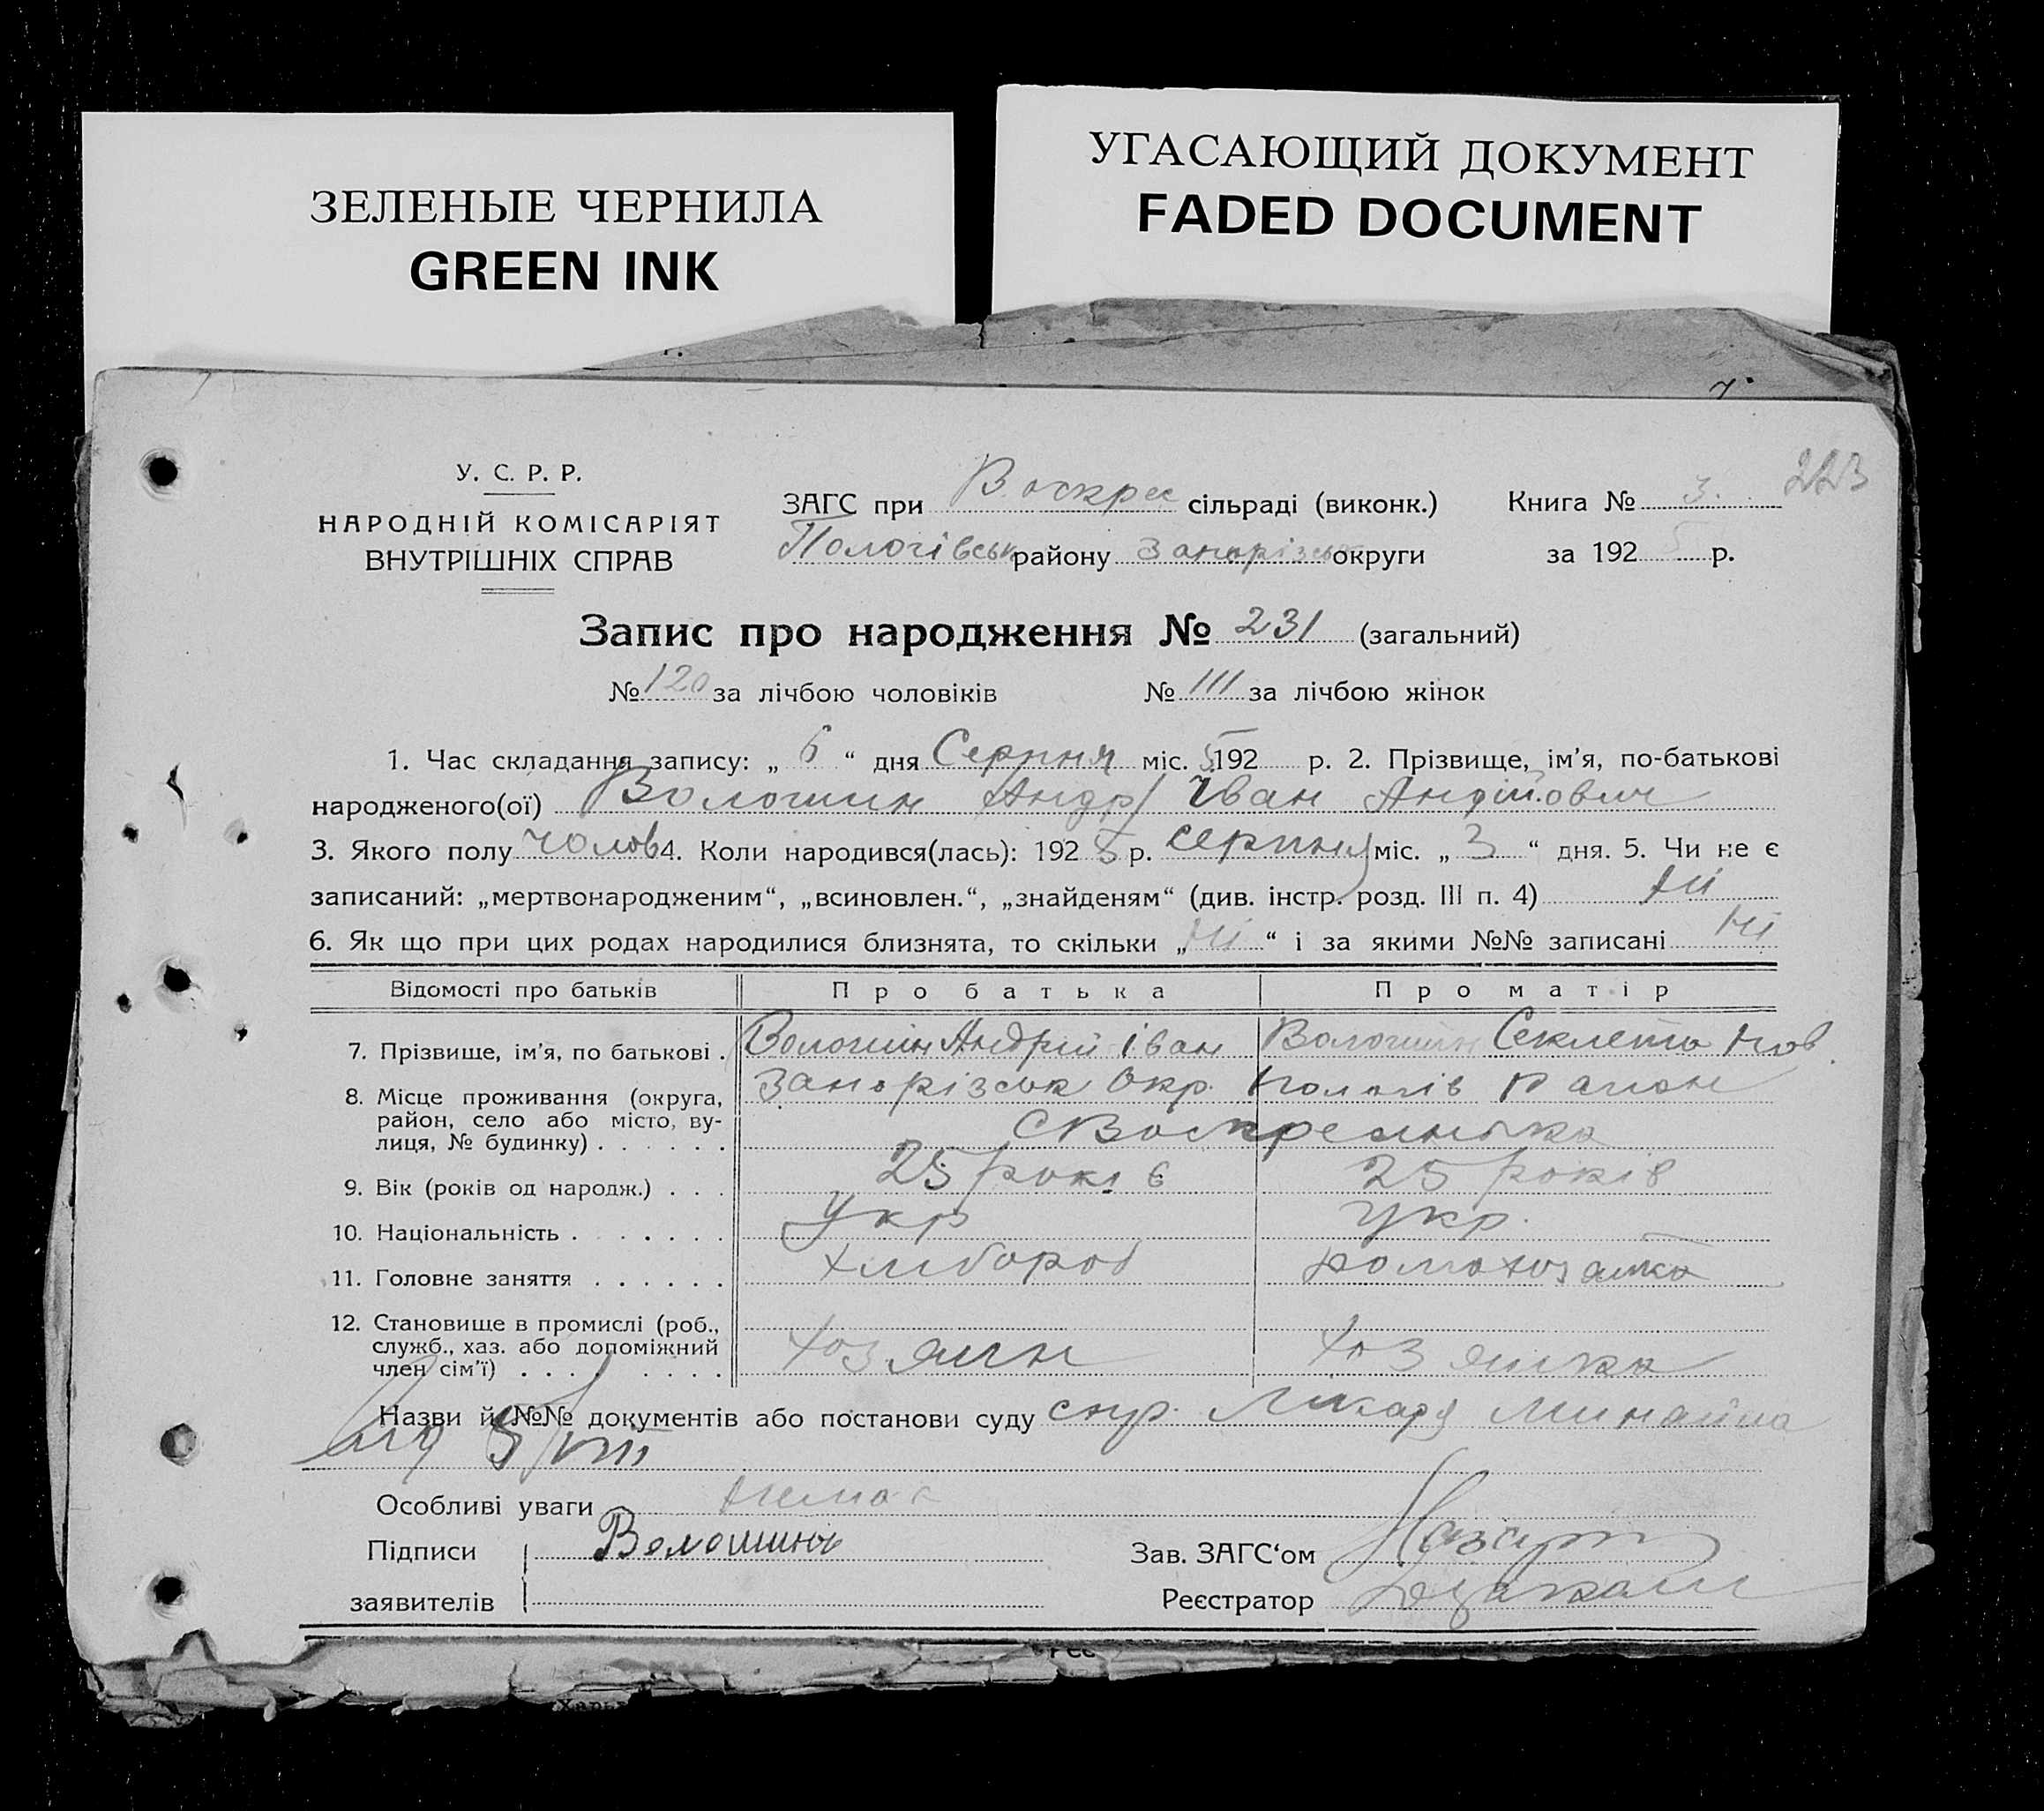 ЗЕЛЕНЫЕ ЧЕРНИЛА
GREEN INK
УГАСАЮЩИЙ ДОКУМЕНТ
FADED DOCUMENT
У. С. Р. Р.
НАРОДНІЙ КОМІСАРІЯТ
ВНУТРІШНІХ СПРАВ
ЗАГС при Воскрес сільраді (виконк.) Книга № 3. 223
Пологівськ району Запорізськ округи за 192 5 р.
Запис про народження № 231 (загальний)
№ 120 за лічбою чоловіків № 111 за лічбою жінок
1. Час складання запису: „ 6 “ дня Серпня міс. 5 192 р. 2. Прізвище, ім’я, по-батькові
народженого(ої) Волошин Андр Іван Андрійович
3. Якого полу чолов 4. Коли народився(лась): 192 5 р. серпня міс. „ 3 “ дня. 5. Чи не є
записаний: „мертвонародженим“, „всиновлен.“, „знайденям“ (див. інстр. розд. III п. 4) ні
6. Як що при цих родах народилися близнята, то скільки „ ні “ і за якими №№ записані ні
Відомості про батьків Про батька Про матір
7. Прізвище, ім’я, по батькові . Волошин Андрій Іван Волошин Секлета
8. Місце проживання (округа, Запорізськ Окр. Пологів Район
район, село або місто, ву-
лиця, № будинку) . . . . . . С Воскресенька
9. Вік (років од народж.) . . . 25 років 25 років
10. Національність . . . . . . Укр Укр.
11. Головне заняття . . . . . . Хлібороб Домохозяйка
12. Становище в промислі (роб.,
служб., хаз. або допоміжний Хозяин Хозяйка
член сім’ї) . . . . . . . .
Назви й №№ документів або постанови суду спр. Лікаря
5/VIII
Особливі уваги немає
Підписи Волошинъ Зав. ЗАГС‘ом
заявителів Реєстратор